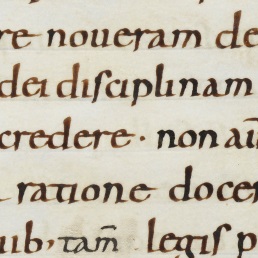 re noueram de
dei disciplinam
credere · non au
ratione docer
uib; tam̄ legis p